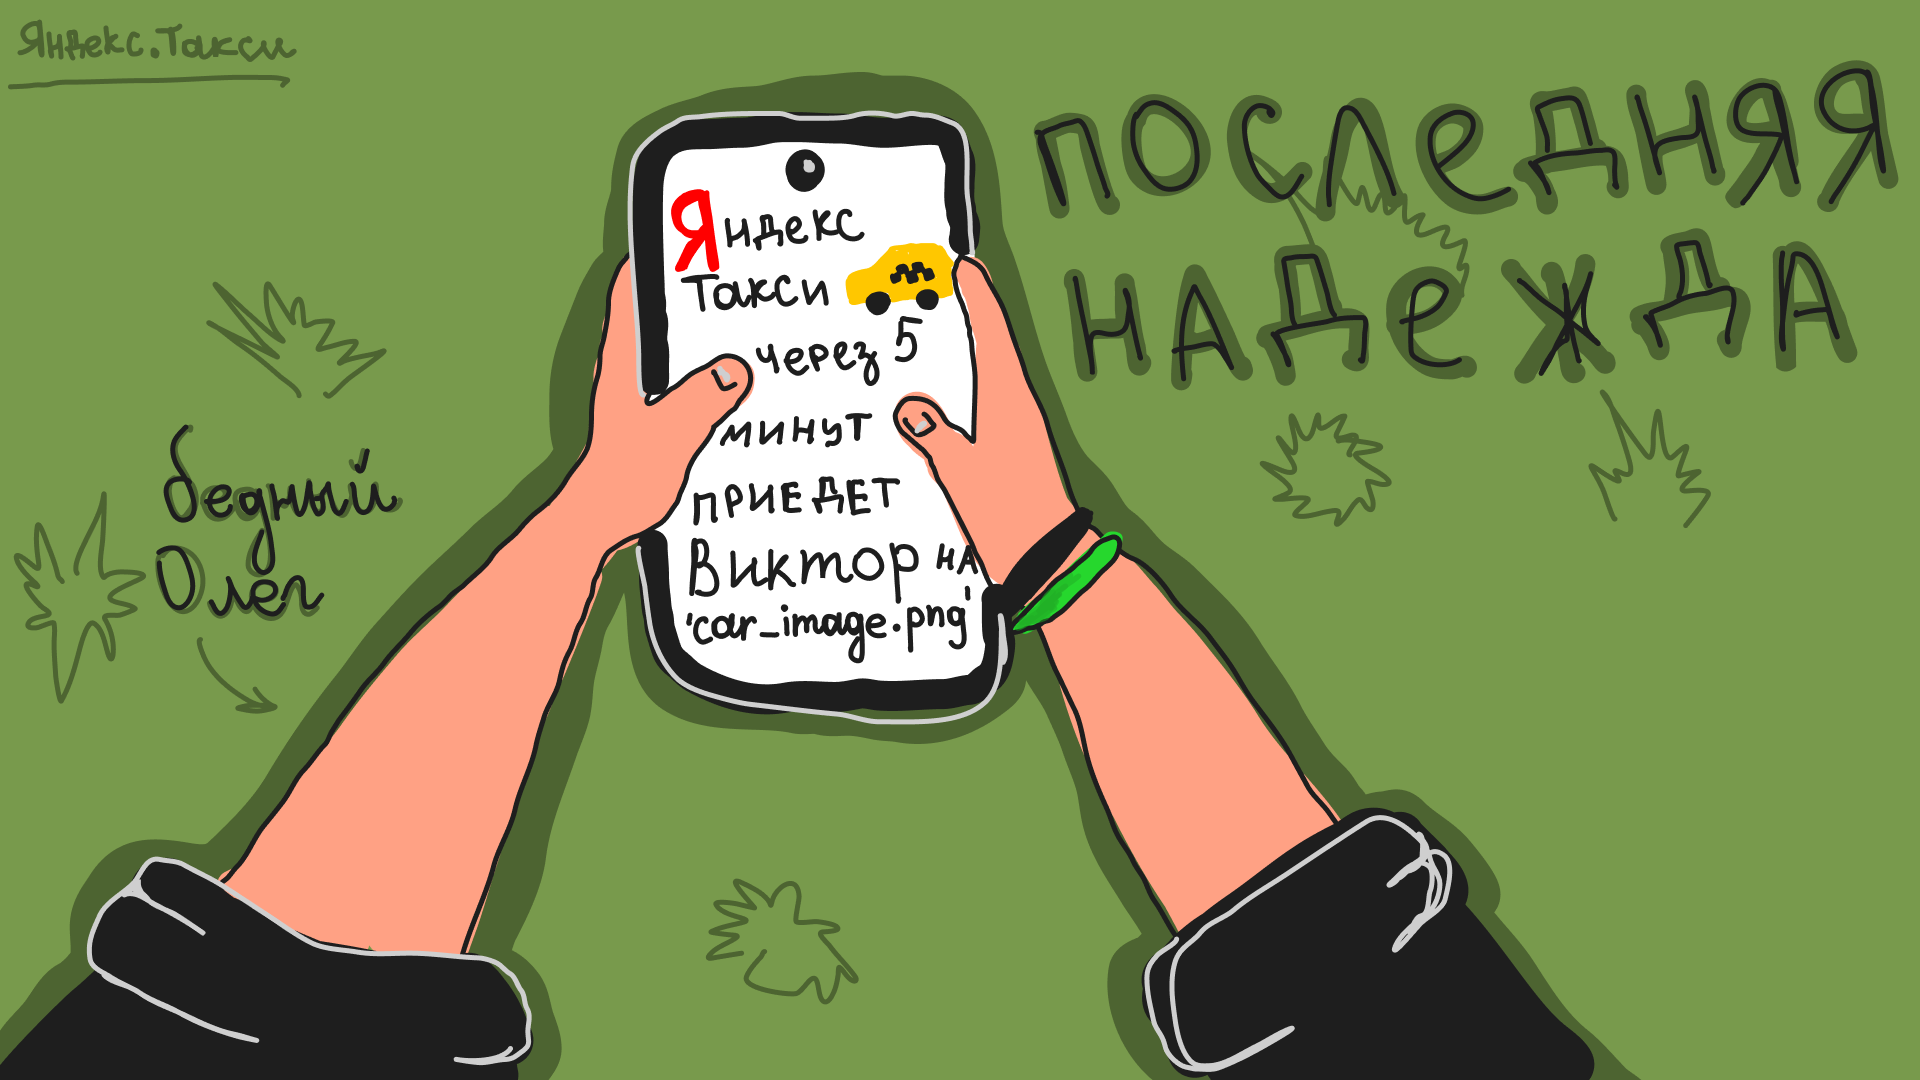 Яндекс.Такси
ПОСЛеДНЯЯ
НАДеЖДА
Яндекс
Такси
через 5
минут
ПРИЕДЕТ
Виктор НА
'car_image.png'
бедный
Олег